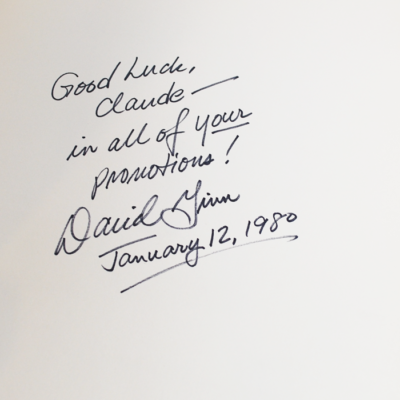 Good Luck,
Claude —
in all of your
promotions!
David Ginn
January 12, 1980